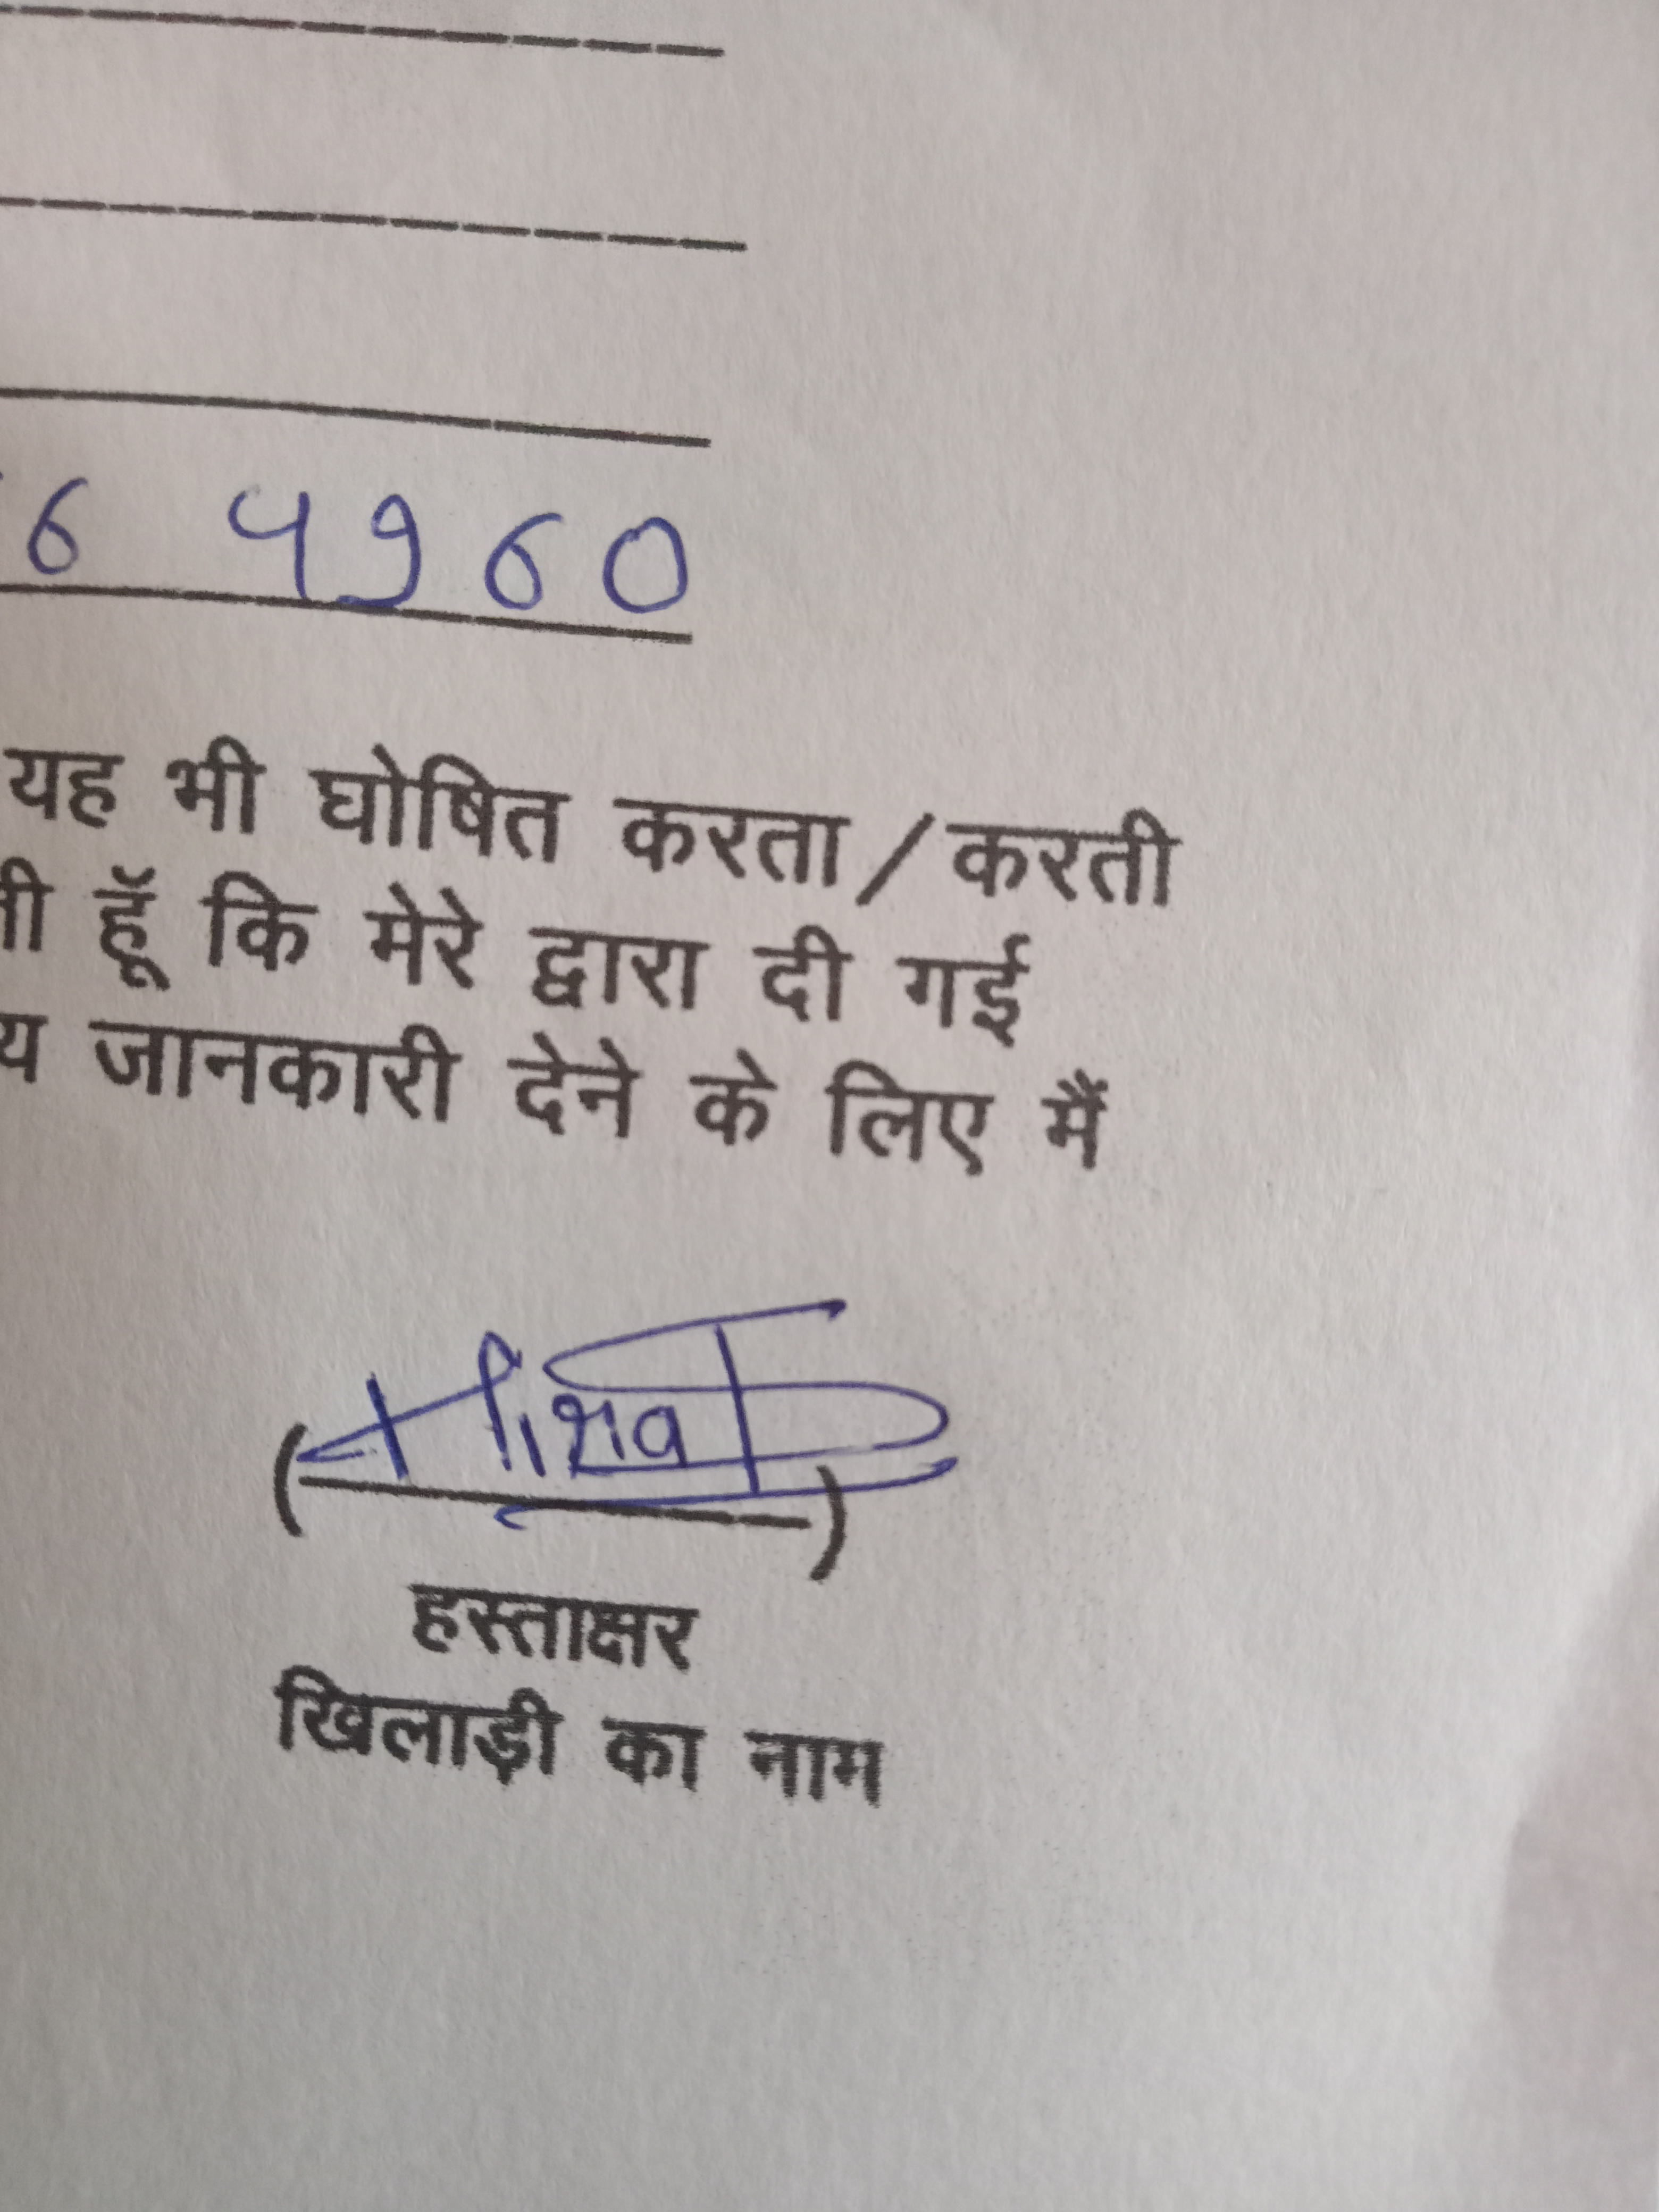 6 4960
यह भी घोषित करता/करती
हूॅं कि मेरे द्वारा दी गई
जानकारी देने के लिए मैं
(
)
हस्ताक्षर
खिलाड़ी का नाम